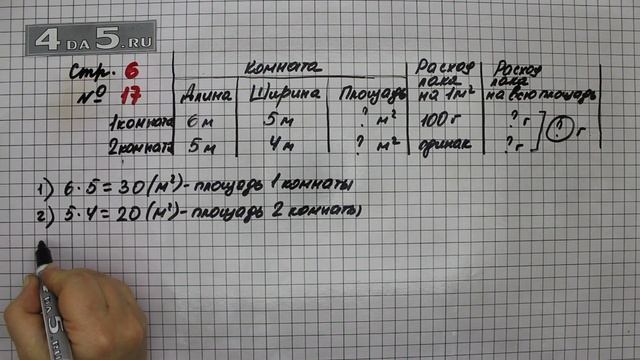 4 DA 5.RU
Стр. 6
№ 17
Комната
Длина Ширина Площадь
Расход лака на 1м²
Расход лака на всю площадь
1 комната 6 м 5 м ? м² 100 г ? г
2 комната 5 м 4 м ? м² одинак ? г
? г
1) 6 · 5 = 30 (м²) - площадь 1 комнаты
2) 5 · 4 = 20 (м²) - площадь 2 комнаты